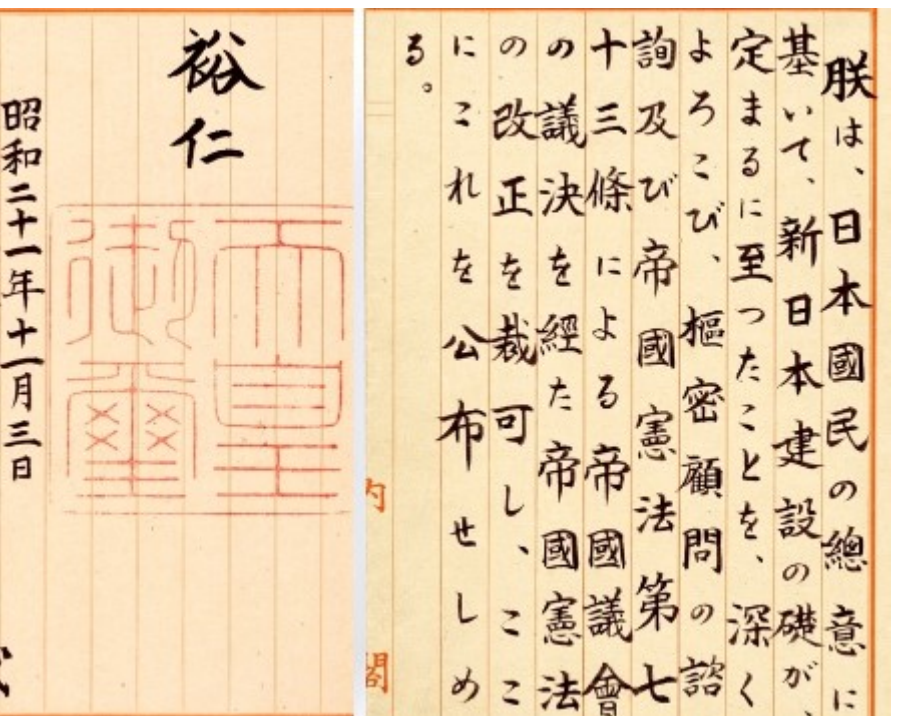 朕は、日本國民の總意に
基いて、新日本建設の礎が、
定まるに至つたことを、深く
よろこび、樞密顧問の諮
詢及び帝國憲法第七
十三條による帝國議會
の議決を経た帝國憲法
の改正を裁可し、ここ
にこれを公布せしめ
る。
内閣
裕仁
天皇
御璽
昭和二十一年十一月三日